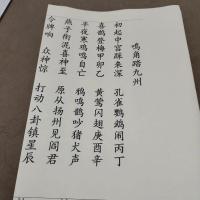 鸣角踏九州
初起中宫踩来深 孔雀鹦鹉闹丙丁
喜鹊登梅甲卯乙 黄莺闪翅庚酉辛
半夜寒鸡鸣自亡 鸦鸣鹊吵猪犬声
燕子衔泥喜神至 原从扬州见阎君
令牌响 众神惊 打动八卦镇星辰